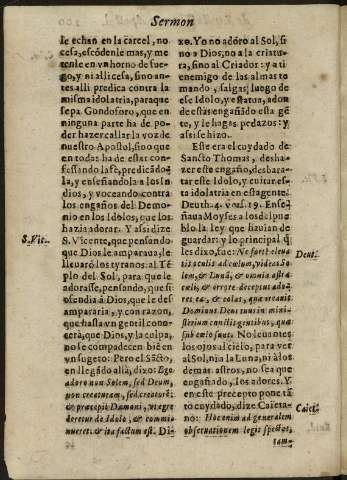 Sermon
le echan en la carcel, no
cesa, escódenle mas, y me
tenle en vn horno de fue-
go, y ni alli cesa, sino an-
tes alli predica contra la
misma idolatria, para que
sepa Gondoforo, que en
ninguna parte ha de po-
der hazer callar la voz de
nuestro Apostol, sino que
en todas ha de estar con-
fessando la fè, predicádo-
la, y enseñandola a los In
dios, y voceando contra
los engaños del Demo-
nio en los Idolos, que los
hazia adorar. Y assi dize
S. Vicente, que pensando
que Dios le amparaua, le
lleuaró los tyranos al Té
plo del Sol, para que le
adorasse, pensando, que si
ofendia à Dios, que le des
ampararia, y con razon,
que hasta vn gentil cono-
cerà, que Dios, y la culpa,
no se compadecen bié en
vn sugeto: Pero el Sãcto,
en llegádo allà, dixo: Ego
adoro non Solem, sed Deum,
non creaturam, sed creatorẽ:
& præcepit Dæmoni, vt egre
deretur de Idolo, & commi-
nueret. & ita factum est. Di-
S. Vic.
xo. Yo no adoro al Sol, si
no a Dios; no a la criatu-
ra, sino al Criador: y a ti
enemigo de las almas te
mando, salgas luego de
esse Idolo, y estatua, adon
de estás engañádo esta gẽ
te, y le hagas pedazos: y
assi se hizo.
Este era el cuydado de
Sancto Thomas, desha-
zer este engaño, desbara-
tar esse Idolo, y euitar es-
ta idolatria en esta gente.
Deuth. 4. vers. 19. Ense-
ñaua Moyses a los del pue
blo la ley que hauian de
guardar: y lo principal q̃
les dixo, fue: Ne fortè eleua
tis oculis ad cœlum, videas So-
lem, & Lunã, & omnia astra
cœli, & errore deceptus ado-
res ea, & colas, quæ creauit
Dominus Deus tuus in mini-
sterium cunctis gentibus, quæ
sub cœlo sunt. No leuantes
los ojos al cielo, para ver
al Sol, ni a la Luna, ni à los
demas astros, no sea que
engañado, los adores. Y
en este precepto ponę tá
to cuydado, dize Caieta-
no: Hoc enim ad generalem
obseruationem legis spectat,
tam-
Deut.
Caiet.